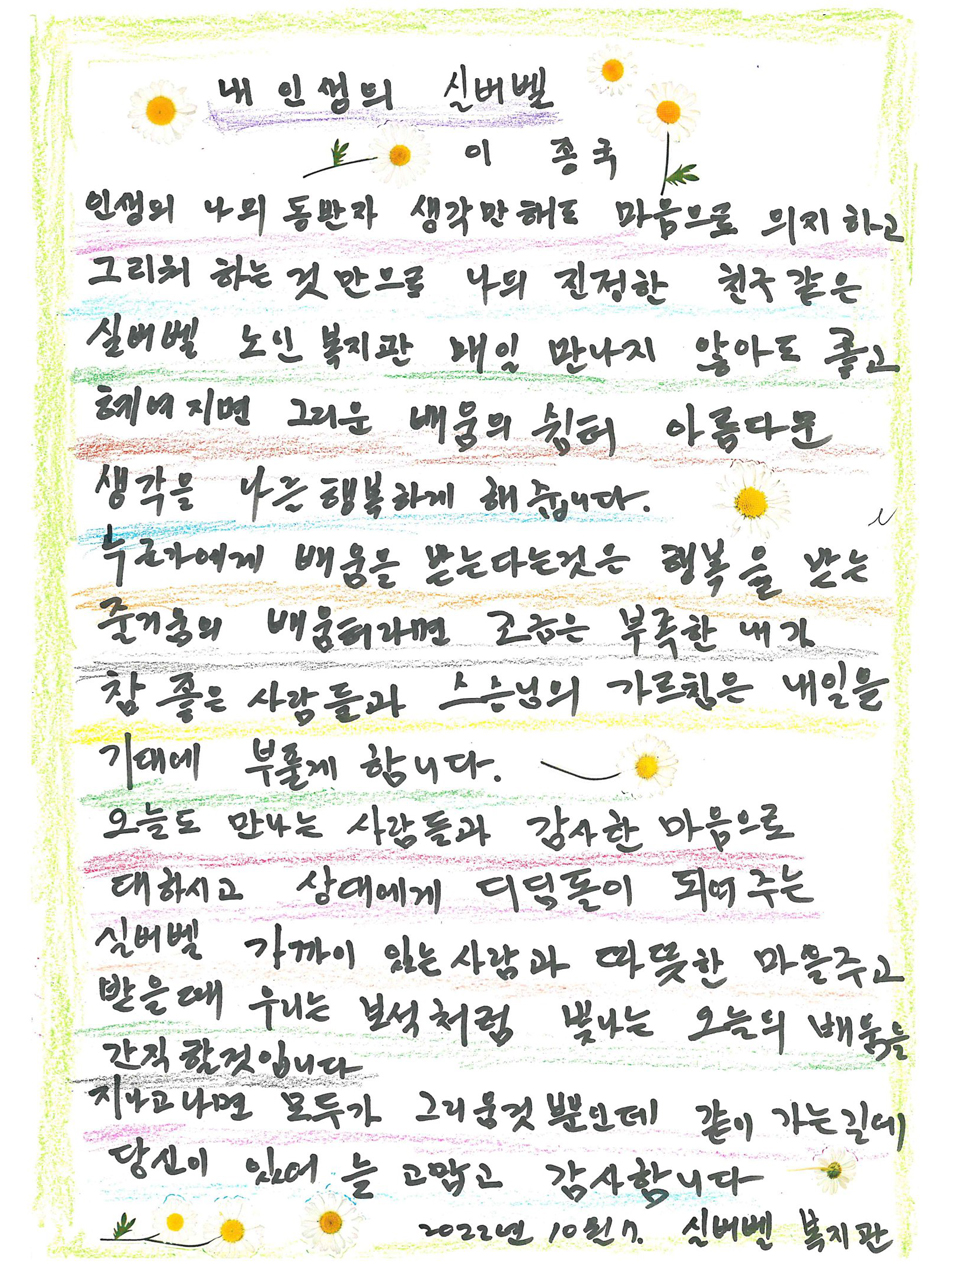 내 인생의 실버벨
이 종국
인생의 나의 동반자 생각만해도 마음으로 의지하고
그리워 하는 것 만으로 나의 진정한 천국 같은
실버벨 노인 복지관 매일 만나지 않아도 좋고
헤여지면 그리운 배움의 쉼터 아름다운
생각을 나를 행복하게 해 줍니다.
누군가에게 배움을 받는다는것은 행복을 받는
즐거움의 배움터라면 조금은 부족한 내가
참 좋은 사람들과 스승님의 가르침은 내일을
기대에 부풀게 합니다.
오늘도 만나는 사람들과 감사한 마음으로
대하시고 상대에게 디딤돌이 되여 주는
실버벨 가까이 있는 사람과 따뜻한 마음주고
받을때 우리는 보석처럼 빛나는 오늘의 배움을
간직 할것입니다
지나고나면 모두가 그리움것 뿐인데 같이 가는길에
당신이 있어 늘 고맙고 감사합니다
2022년 10월 7. 실버벨 복지관